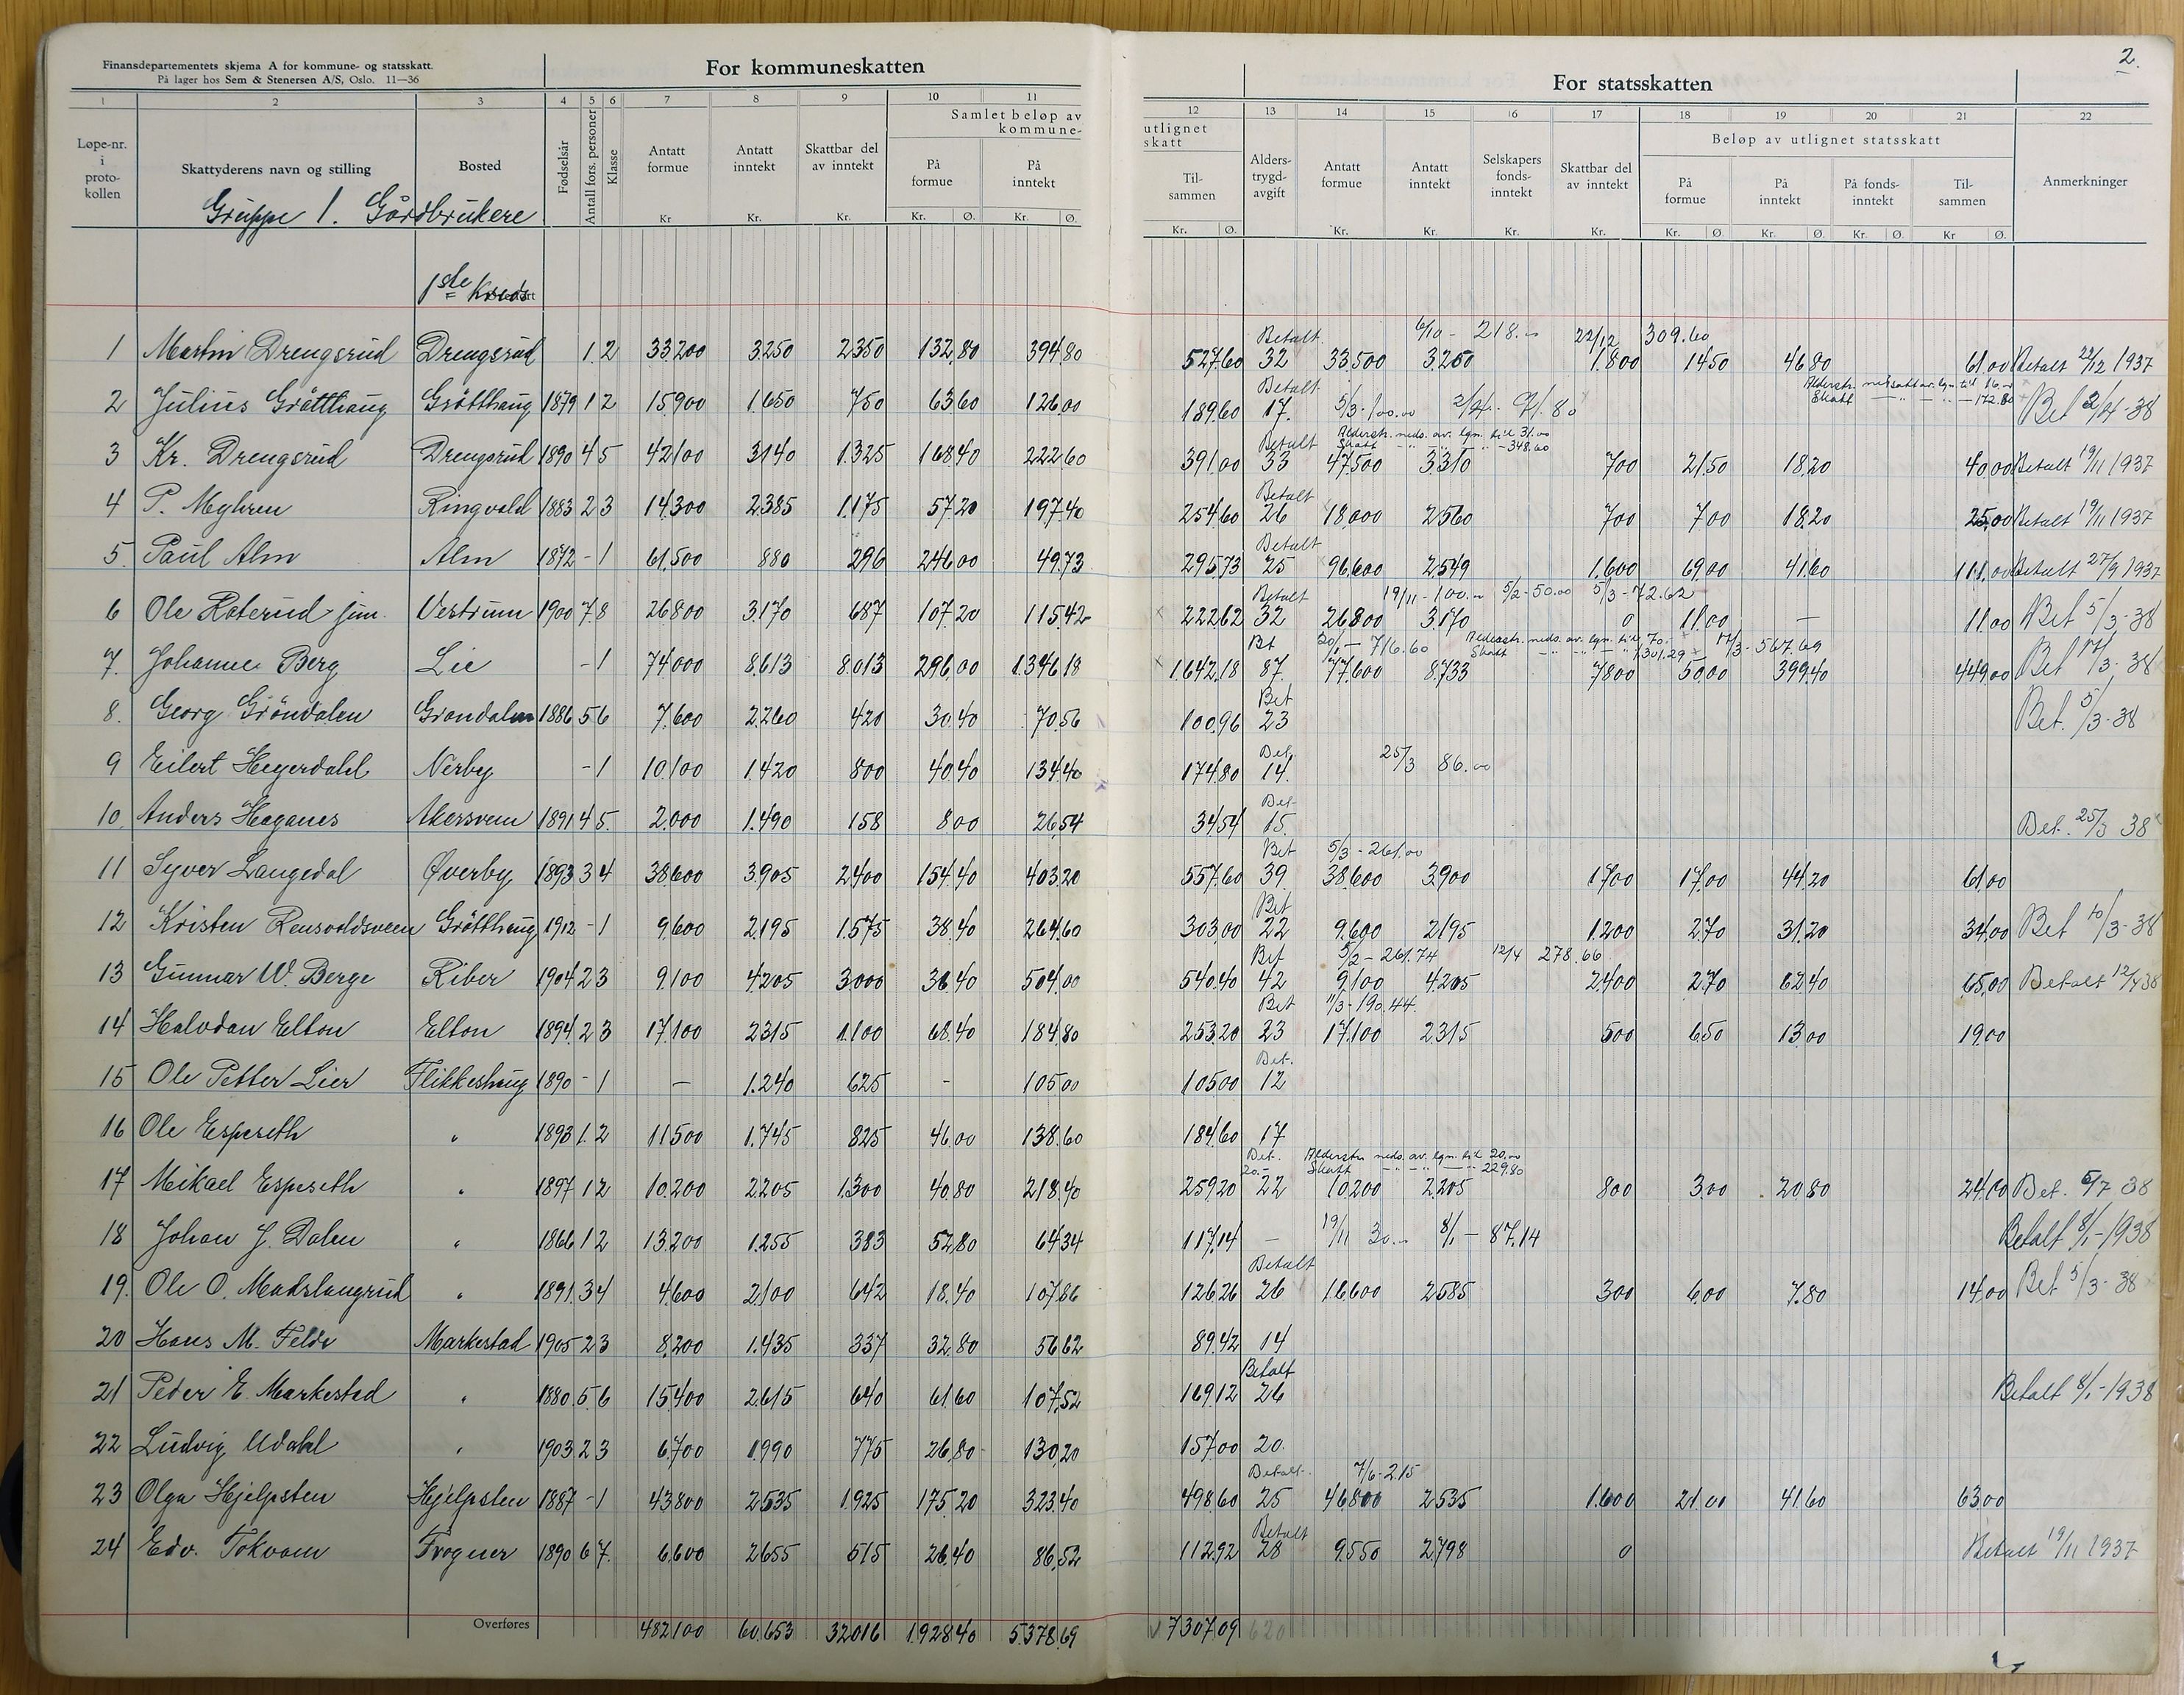 2.
Finansdepartementets skjema A for kommune- og statsskatt.
På lager hos Sem & Stenersen A/S, Oslo. 11—36
For kommuneskatten
For statsskatten
1 2 3 4 5 6 7 8 9 10 11 12 13 14 15 16 17 18 19 20 21 22
Samlet beløp av kommune-
utlignet skatt
Beløp av utlignet statsskatt
Løpe-nr. i proto-kollen
Skattyderens navn og stilling
Bosted
Fødselsår
Antall fors. personer
Klasse
Antatt formue
Antatt inntekt
Skattbar del av inntekt
På formue
På inntekt
Til-sammen
Alders-trygd-avgift
Antatt formue
Antatt inntekt
Selskapers fonds-inntekt
Skattbar del av inntekt
På formue
På inntekt
På fonds-inntekt
Til-sammen
Anmerkninger
Kr Kr. Kr. Kr. Ø. Kr. Ø. Kr. Ø. Kr. Kr. Kr. Kr. Kr. Ø. Kr. Ø. Kr. Ø. Kr Ø.
Gruppe 1. Gårdbrukere
1ste Kreds
Betalt 6/10 - 218.- 22/12 309.60
1 Martin Drengsrud Drengsrud 1 2 33200 3250 2350 132,80 394,80 527,60 32 33,500 3.250 1.800 14,50 46,80 61,00 Betalt 22/12 1937
Betalt Alderstr. nedsatt av. lgn. til 16.-
Skatt — " — " — 172.80
2 Julius Grøtthaug Grøtthaug 1879 1 2 15900 1.650 750 63,60 126,00 189,60 17. 5/3-100.00 2/4- 91.80 Bet 2/4-38
Betalt Alderstr. neds. av. lgn. til 31.00
Skatt - " - " - 348.60
3 Kr. Drengsrud Drengsrud 1890 4 5 42100 3140 1.325 168,40 222,60 391,00 33 47,500 3.310 700 21,50 18,20 40,00 Betalt 19/11 1937
Betalt
4 P. Myhren Ringvold 1883 2 3 14,300 2.385 1.175 57,20 197,40 254,60 26 18,000 2560 700 7,00 18,20 25,00 Betalt 19/11 1937
Betalt
5. Paul Alm Alm 1872 - 1 61,500 880 296 246,00 49,73 295,73 25 96,600 2549 1.600 69,00 41,60 111,00 Betalt 27/9 1937
Betalt 19/11-100.- 5/2-50.00 5/3-72.62
6 Ole Roterud jun. Vestrum 1900 7 8 26800 3.170 687 107,20 115,42 222,62 32 26800 3.170 0 11,00 — 11,00 Bet 5/3-38
Bet 20/1 - 716.60 Alderstr. neds. av. lgn. til 70.- 17/3-567.69
Skatt - " - " 1301.29
7. Johannes Berg Lie - 1 74000 8,613 8.013 296,00 1.346,18 1.642,18 87. 77,600 8,733 7800 50,00 399,40 449,00 Bet 17/3-38
Bet
8. Georg Gröndalen Grøndalen 1886 5 6 7.600 2.260 420 30,40 70,56 100,96 23 Bet. 5/3-38
Bet.
9 Eilert Hegerdahl Nerby - 1 10,100 1.420 800 40,40 134,40 174,80 14. 25/3 86.00
Bet-
10. Anders Haganes Akersveen 1891 4 5. 2.000 1.490 158 8,00 26,54 34,54 15. Bet. 25/3 38
Bet 5/3-261.00
11 Syver Langedal Øverby 1893 3 4 38,600 3.905 2400 154,40 403,20 557,60 39. 38,600 3900 1700 17,00 44,20 61,00
Bet
12 Kristen Rensvoldsveen Grøtthaug 1912 - 1 9,600 2.195 1.575 38,40 264,60 303,00 22 9,600 2195 1.200 2,70 31,20 34,00 Bet 10/3-38
Bet 5/2-261.74 12/4 278.66
13 Gunnar W. Berge Riber 1904 2 3 9,100 4.205 3,000 36,40 504,00 540,40 42 9,100 4.205 2,400 2,70 62,40 65,00 Betalt 12/4 38
Bet 11/3-190.44.
14 Halvdan Elton Elton 1894 2 3 17,100 2.315 1.100 68,40 184,80 253,20 23 17,100 2.315 500 6,50 13,00 19,00
Bet.
15 Ole Petter Lier Flikkeshaug 1890 - 1 — 1.240 625 - 105,00 105,00 12
16 Ole Espeseth " 1893 1 2 11500 1.745 825 46,00 138,60 184,60 17
Bet. 20.- Alderstr. neds. av. lgn. til 20.00
Skatt - " - " - 229.80
17 Meikael Espeseth " 1897 1 2 10,200 2.205 1300 40,80 218,40 259,20 22 10,200 2,205 800 3,00 20,80 24,00 Bet. 6/7 38
18 Johan J. Dalen " 1866 1 2 13,200 1.255 383 52,80 64,34 117,14 — 19/11 30.- 8/1 - 87.14 Betalt 8/1-1938
Betalt
19. Ole O. Madslangrud " 1891 3 4 4,600 2,100 642 18,40 107,86 126,26 26 16600 2585 300 6,00 7,80 14,00 Bet 5/3-38
20 Hans M. Felde Markestad 1905 2 3 8,200 1.435 337 32,80 56,62 89,42 14
Betalt
21 Peder E. Markestad " 1880 5 6 15,400 2.615 640 61,60 107,52 169,12 26 Betalt 8/1-1938
22 Ludvig Udahl " 1903 2 3 6,700 1.990 775 26,80 130,20 157,00 20.
Betalt. 7/6-215
23 Olga Hjelpsten Hjelpsten 1887 - 1 43800 2535 1.925 175,20 323,40 498,60 25 46800 2535 1.600 21,00 41,60 63,00
Betalt
24 Edv. Tokvam Frogner 1890 6 7. 6,600 2655 515 26,40 86,52 112,92 28 9,550 2,798 0 Betalt 19/11 1937
Overføres 482,100 60,653 32016 1.928,40 5.378,69 7307,09 620